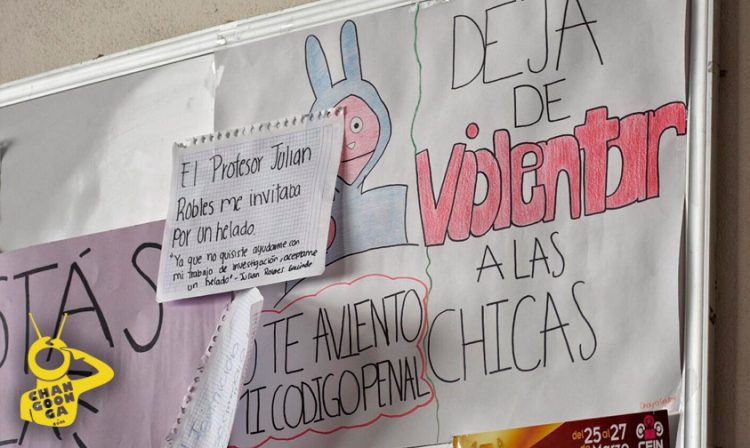 DEJA
DE
Violentar
A LAS
CHICAS
El Profesor Julian
Robles me invitaba
por un helado
"Ya que no quisiste ayudarme con
mi trabajo de investigación, aceptame
un helado" - Julian Robles
TE AVIENTO
MI CODIGO PENAL
STÁS
CHAN
GOON
GA
.COM
del 25 al 27
de Marzo